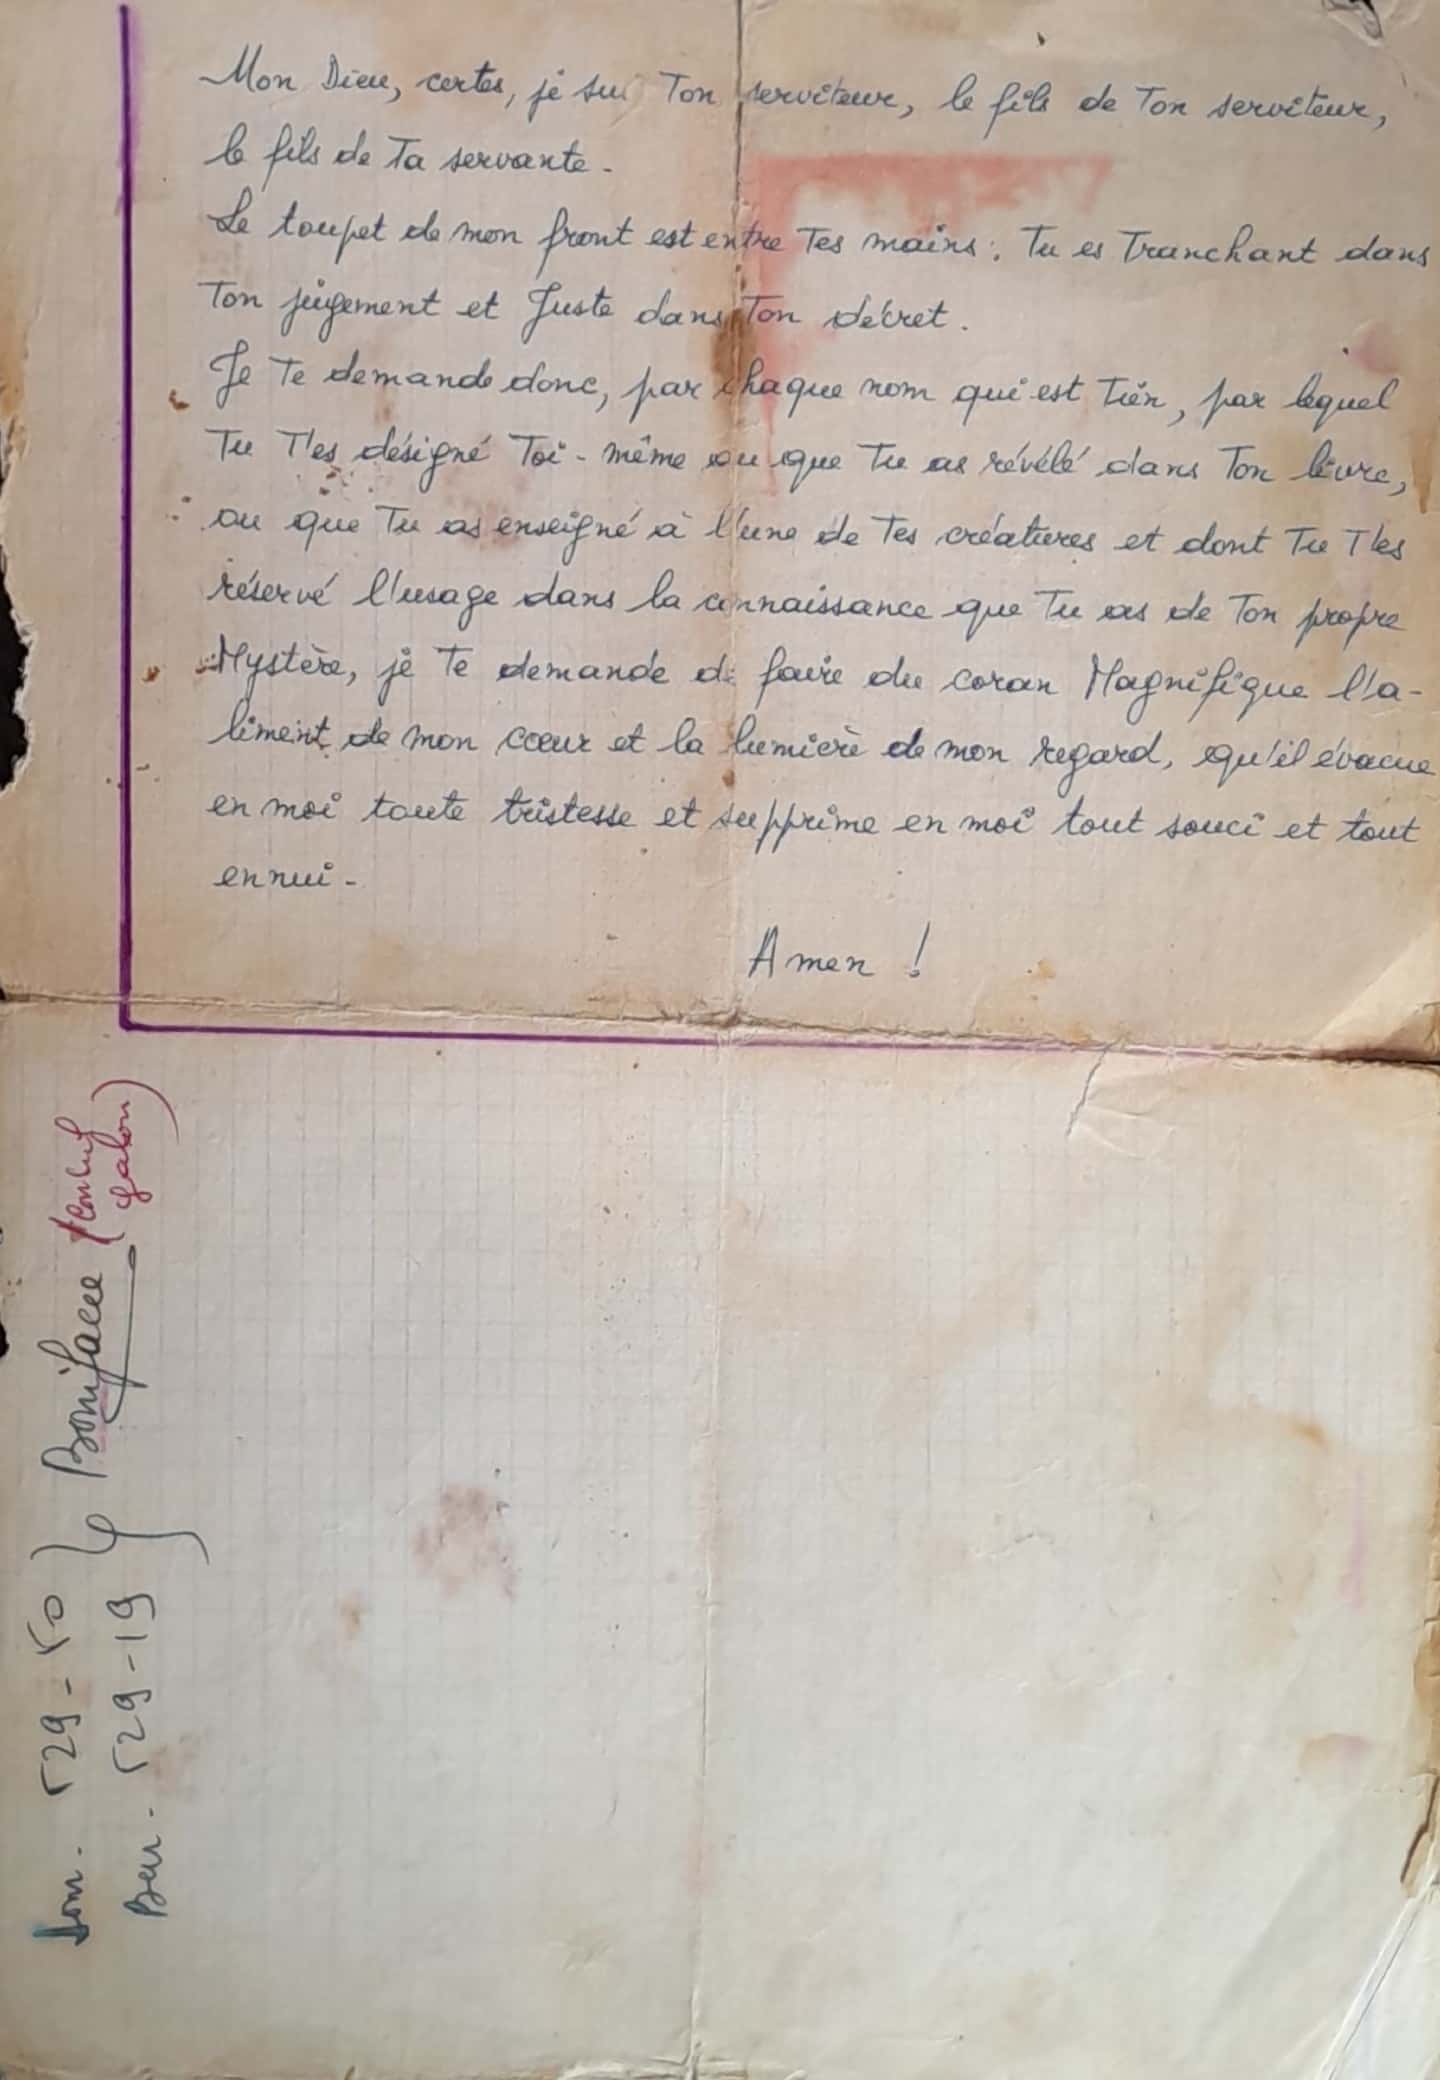 Mon Dieu, certes, je suis Ton serviteur, le fils de Ton serviteur,
le fils de Ta servante.
Le toupet de mon front est entre Tes mains : Tu es Tranchant dans
Ton jugement et Juste dans Ton décret.
Je Te demande donc, par chaque nom qui est Tien, par lequel
Tu T'es désigné Toi-même ou que Tu as révélé dans Ton livre,
ou que Tu as enseigné à l'une de Tes créatures et dont Tu T'es
réservé l'usage dans la connaissance que Tu as de Ton propre
Mystère, je Te demande de faire du coran Magnifique l'a-
liment de mon cœur et la lumière de mon regard, qu'il évacue
en moi toute tristesse et supprime en moi tout souci et tout
ennui.
Amen !
Dom. 529-50
Bur. 529-19
Boniface
Gabon)